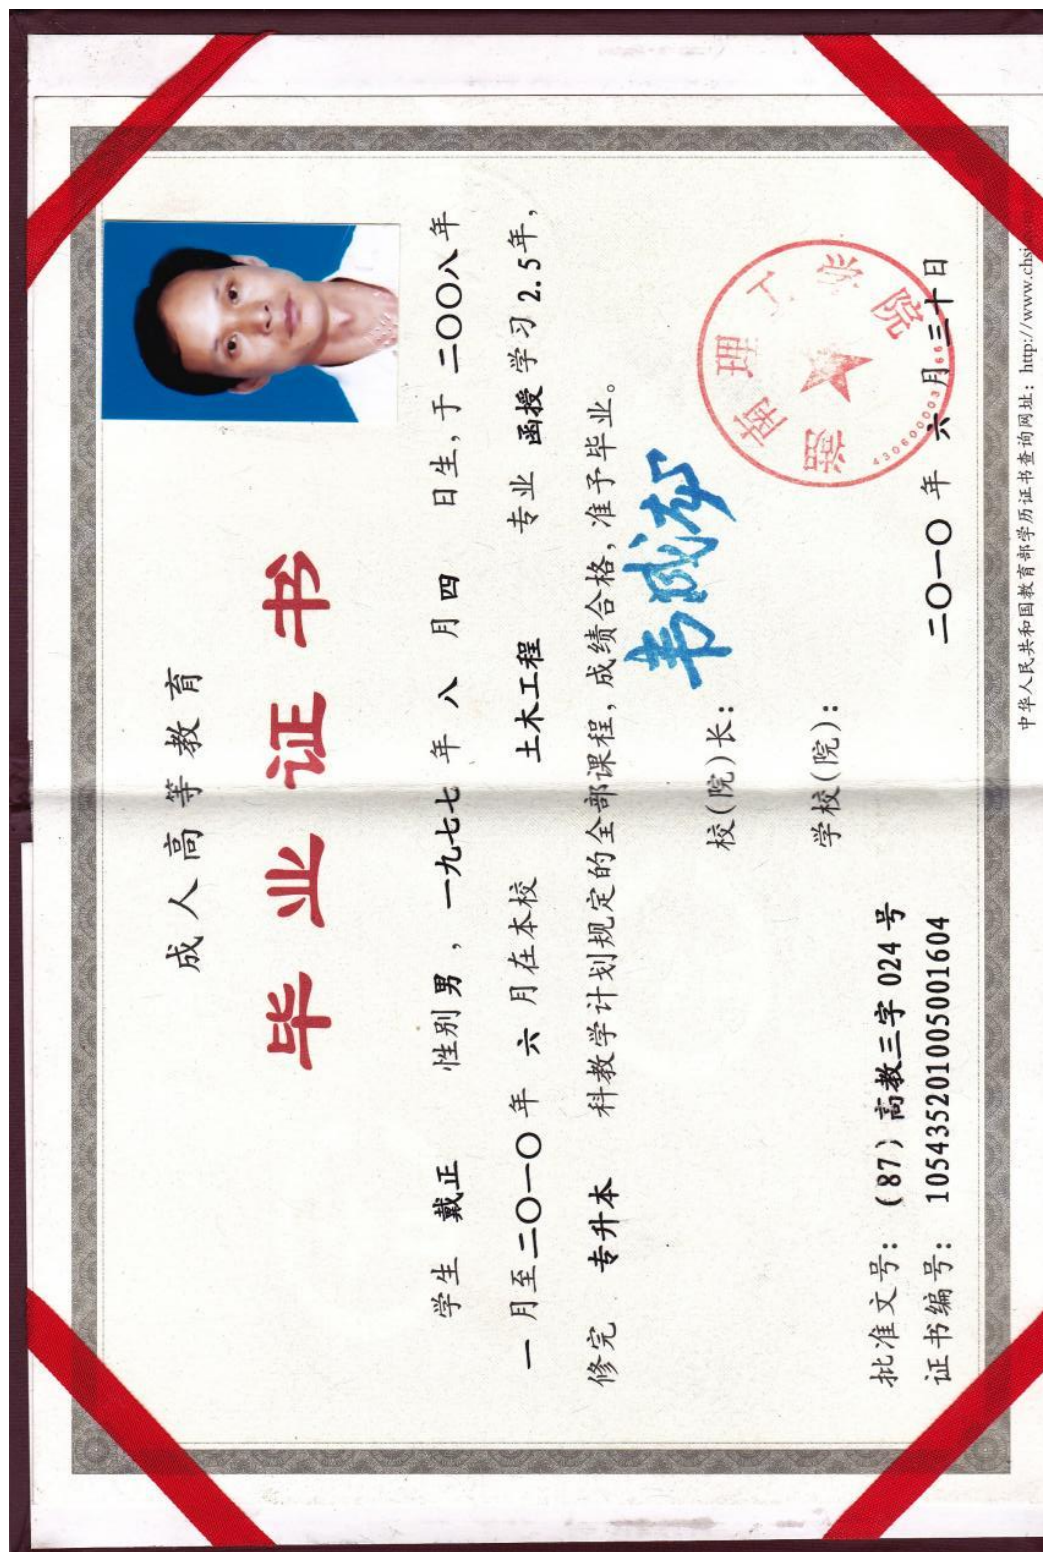 成人高等教育
毕业证书
学生 戴正 性别男，一九七七年八月四日生，于二〇〇八年
一月至二〇一〇年六月在本校 土木工程 专业 函授学习2.5年，
修完 专升本 科教学计划规定的全部课程，成绩合格，准予毕业。
校(院)长：
学校(院)：
湖南理工学院
批准文号：(87)高教三字024号
证书编号：105435201005001604
二〇一〇年六月三十日
中华人民共和国教育部学历证书查询网址：http://www.chsi